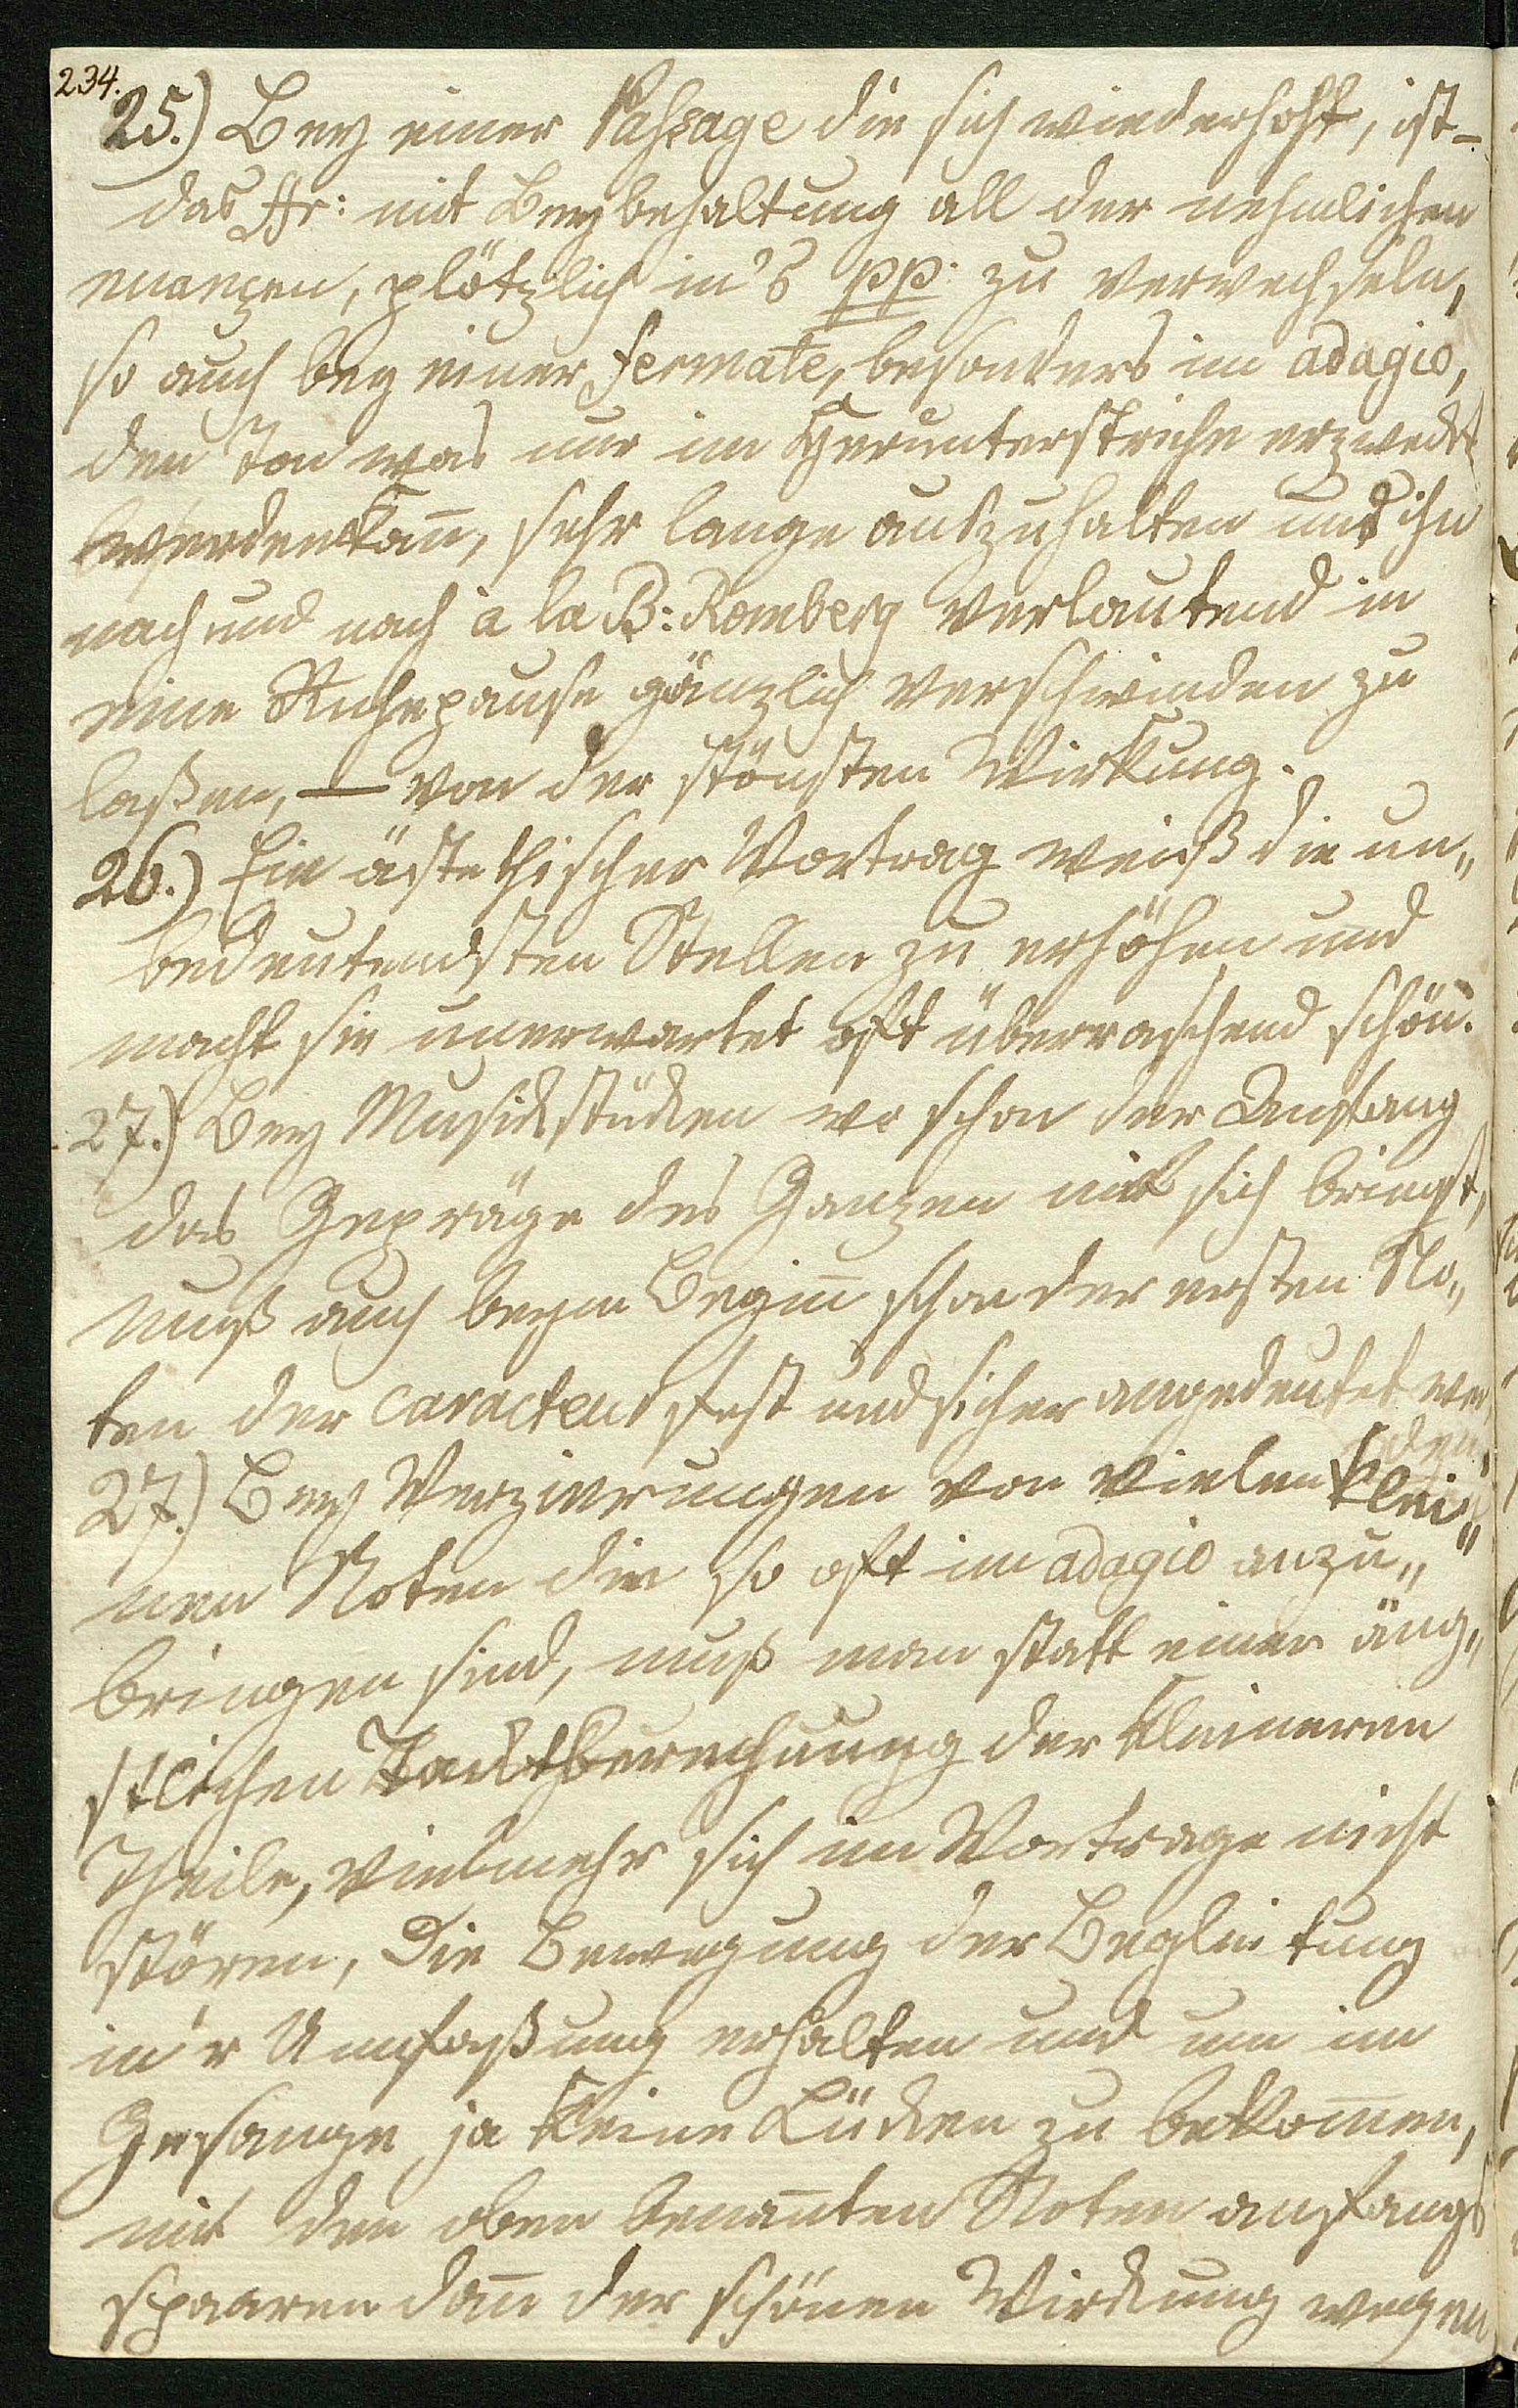 234.
25.) Bey einer Paßage die sich wiederholt, ist-
das ffr: mit Beybehaltung all der nehmlichen
nuanzen, plötzlich in's pp. zu verwechseln,
so auch bey einer fermate, besonders im adagio,
den Ton was nur im Herunterstriche erzweckt
werden kan̄, sehr lange auszuhalten und ihn
nach und nach à la B: Romberg verlautend in
eine Ruhepause gänzlich verschwinden zu
laßen, — von der schönsten Wirkung.
26.) Ein ästethischer Vortrag weiß die un„
bedeutendsten Stellen zu erhöhen und
macht sie unerwartet oft überraschend schön.
27.) Bey Musickstücken wo schon der Anfang
das Gepräge des Ganzen mit sich bringt,
muß auch beym Begin̄ schon der ersten No„
ten der caracteur fest und sicher angedeutet wer
den.
27.) Bey Verzierungen von vielen klei„
nen Noten die so oft im adagio anzu„
bringen sind, muß man statt einer äng„
stlichen Tacktberechnung der kleineren
Theile, vielmehr sich im Vortrage nicht
stören, die Bewegung der Begleitung
in'r Umfaßung erhalten und um im
Gesange ja keine Lücken zu bekom̄en,
mit den oben benan̄ten Noten anfangs
spaaren dan̄ der schönen Wirckung wegen